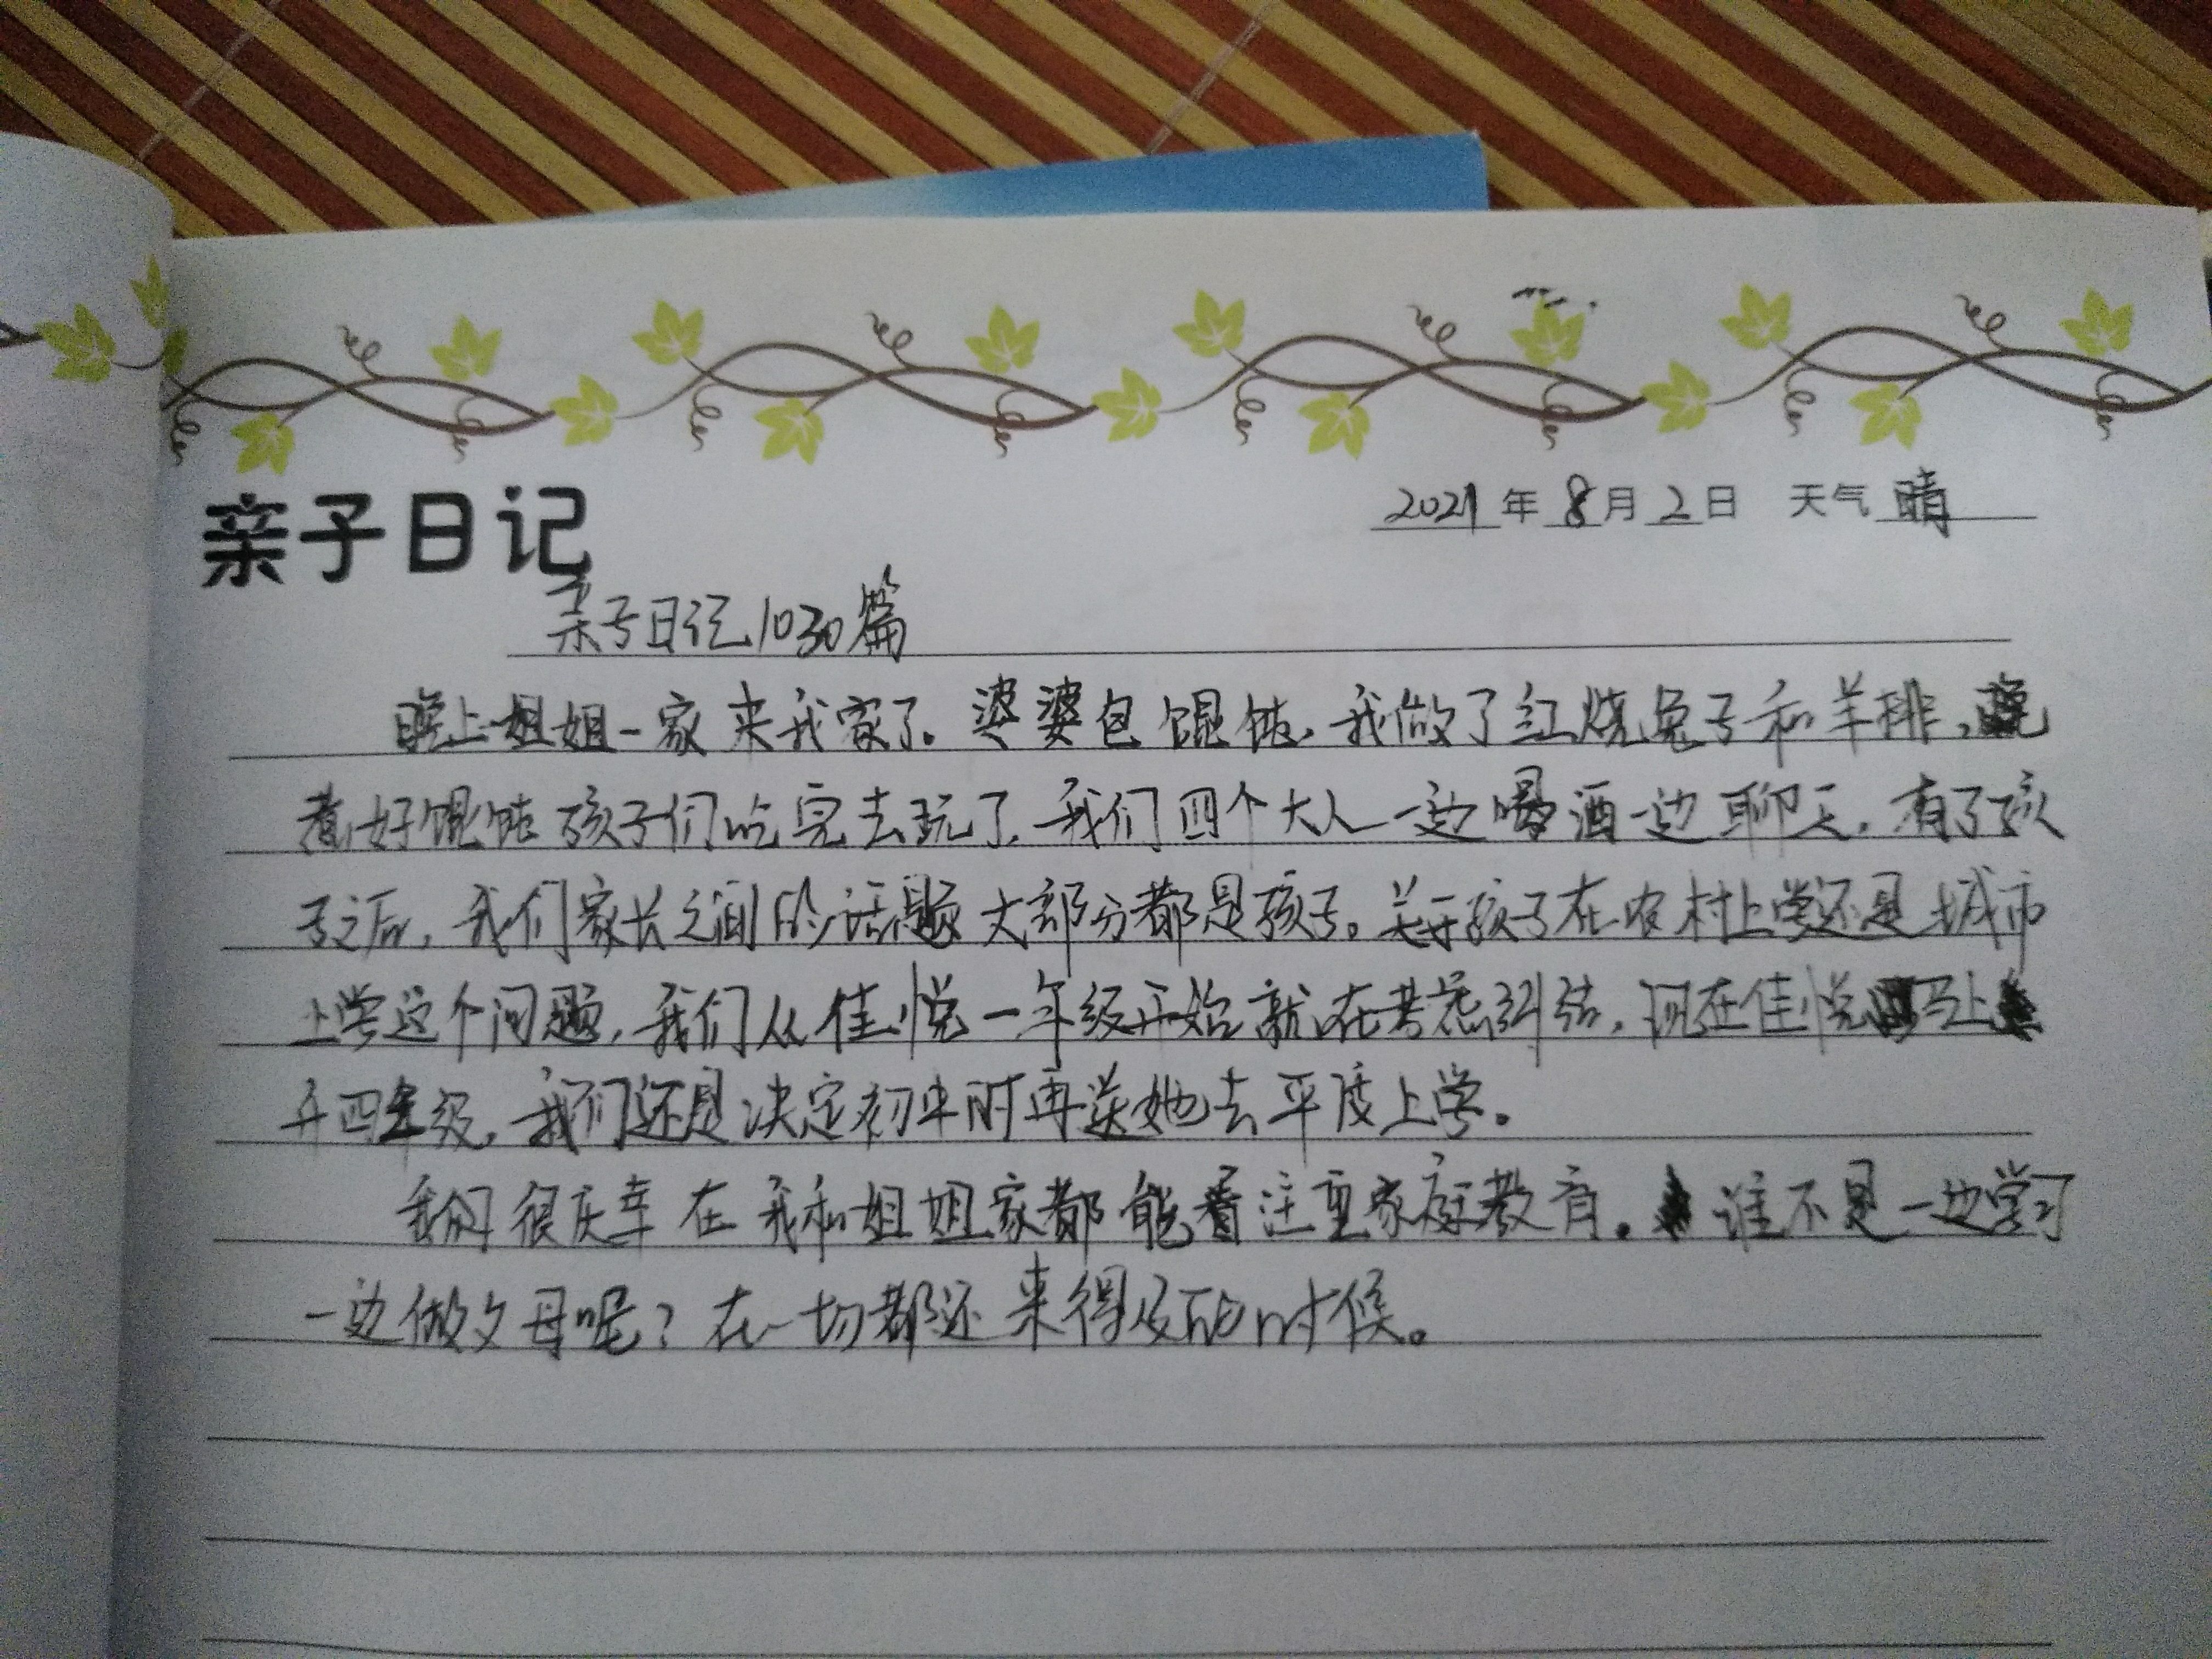 亲子日记
2021年8月2日 天气晴
亲子日记1030篇
晚上姐姐一家来我家了。婆婆包馄饨,我做了红烧兔子和羊排,
煮好馄饨孩子们吃完去玩了,我们四个大人一边喝酒一边聊天,有了孩
子之后,我们家长之间的话题大部分都是孩子。关于孩子在农村上学还是城市
上学这个问题,我们从佳悦一年级开始就在考虑纠结,现在佳悦马上
升四年级,我们还是决定初中时再送她去平度上学。
我们很庆幸在我和姐姐家都能着注重家庭教育。谁不是一边学习
一边做父母呢?在一切都还来得及的时候。